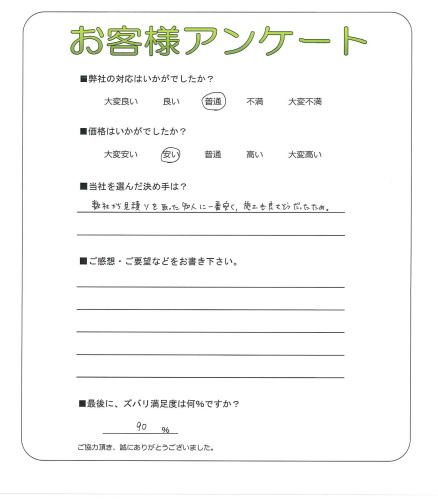 お客様アンケート
■弊社の対応はいかがでしたか？
大変良い 良い 普通 不満 大変不満
■価格はいかがでしたか？
大変安い 安い 普通 高い 大変高い
■当社を選んだ決め手は？
数社から見積りを取った中に一番安く、施工も良さそうだったため。
■ご感想・ご要望などをお書き下さい。
■最後に、ズバリ満足度は何％ですか？
90 ％
ご協力頂き、誠にありがとうございました。